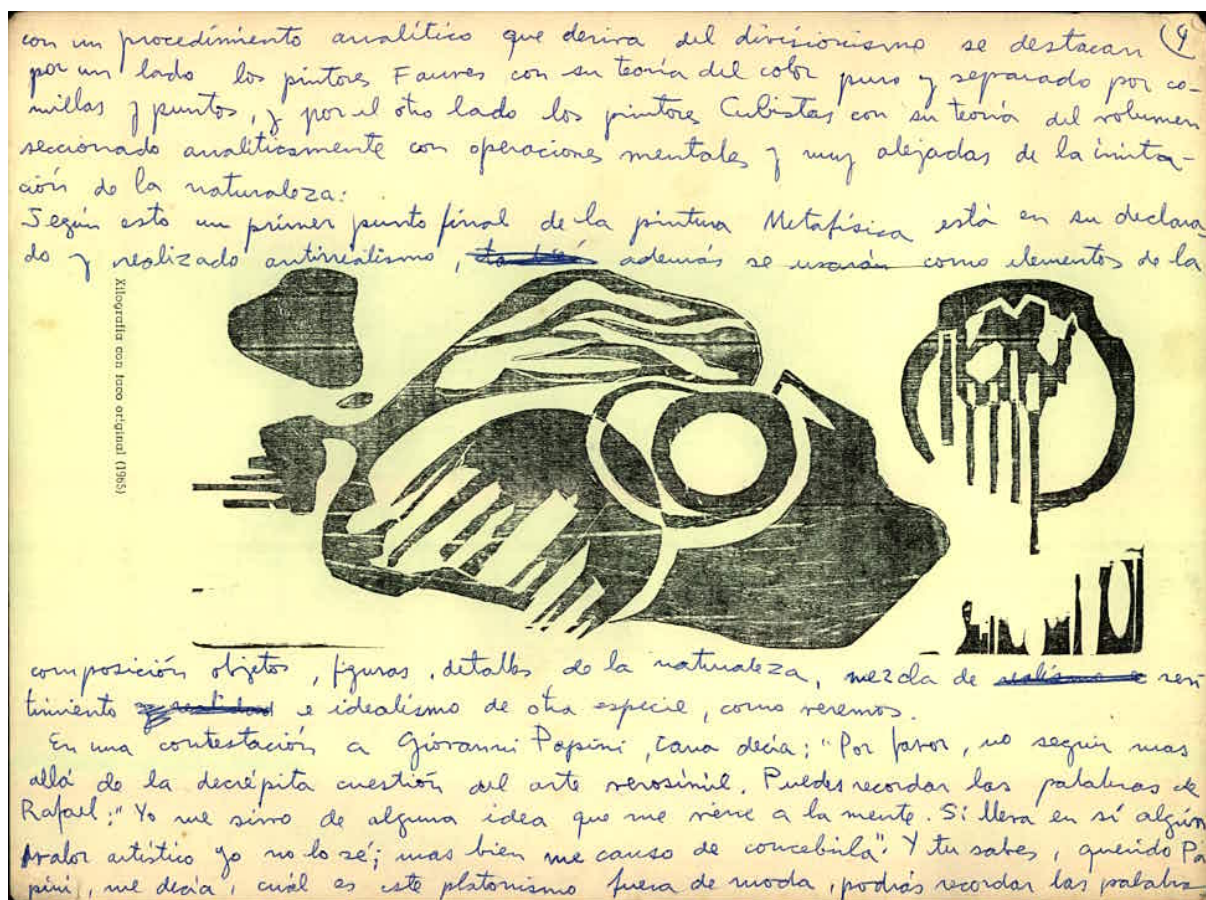 con un procedimiento analítico que deriva del divisionismo se destacan 9
por un lado los pintores Fauves con su teoría del color puro y separado por co-
millas y puntos, y por el otro lado los pintores Cubistas con su teoría del volumen
seccionado analíticamente con operaciones mentales y muy alejadas de la imita-
ción de la naturaleza:
Según esto un primer punto final de la pintura Metafísica está en su declara-
do y realizado antirrealismo, también además se usarán como elementos de la
Xilografía con taco original (1965)
composición objetos, figuras, detalles de la naturaleza, mezcla de realismo e sen
timiento realidad e idealismo de otra especie, como veremos.
En una contestación a Giovanni Papini, decía: "Por favor, no seguir mas
allá de la decrépita cuestión del arte verosímil. Puedes recordar las palabras de
Rafael: "Yo me sirvo de alguna idea que me viene a la mente. Si lleva en sí algún
valor artístico yo no lo sé; mas bien me canso de concebirla". Y tu sabes, querido Pa
pini, me decía, cuál es este platonismo fuera de moda, podrás recordar las palabra